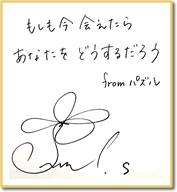 もしも今 会えたら
あなたを どうするだろう
from パズル
s